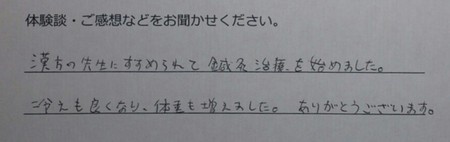 体験談・ご感想などをお聞かせください。
漢方の先生にすすめられて鍼灸治療を始めました。
冷えも良くなり、体重も増えました。 ありがとうございます。